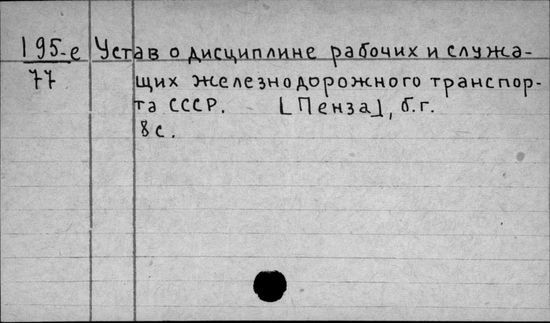 195-е Устав о дисциплине рабочих и служа-
77 щих железнодорожного транспор-
та СССР. [Пенза], б.г.
8с.